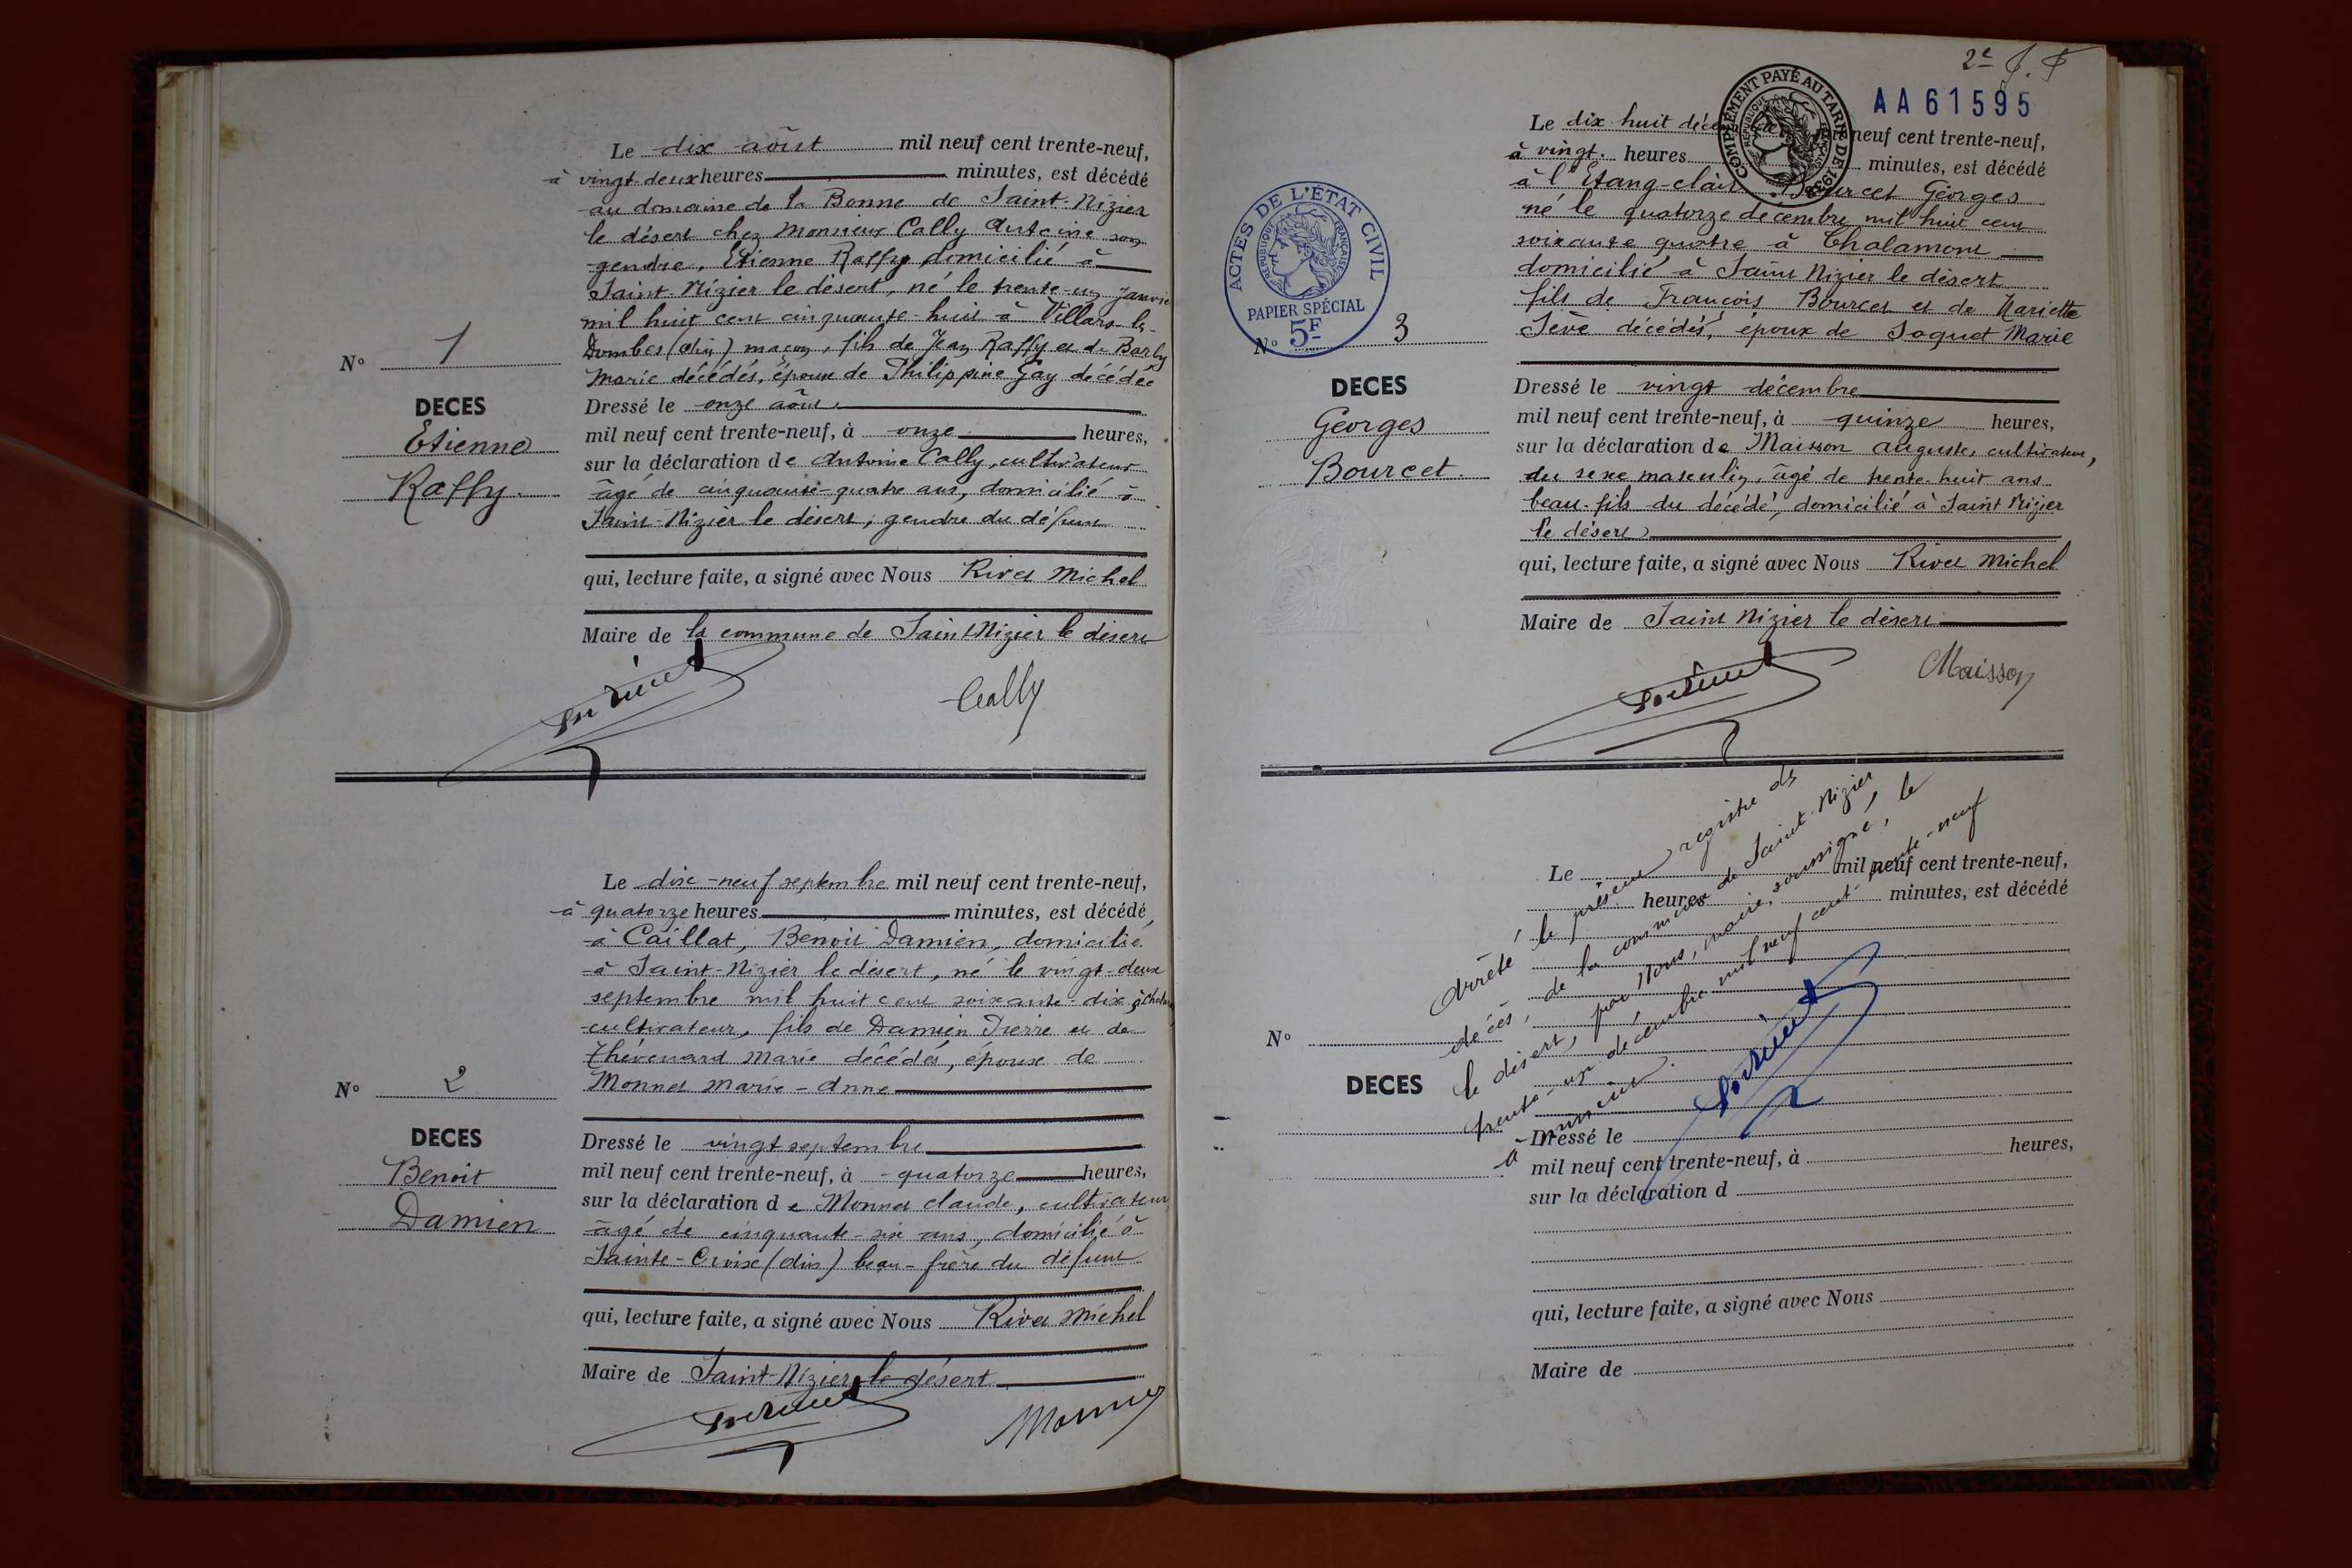 Le dix août mil neuf cent trente-neuf,
à vingt-deux heures minutes, est décédé
au domaine de la Bonne de Saint-Nizier
le désert chez Monsieur Cally Antoine son
gendre, Etienne Raffy domicilié à
Saint-Nizier le désert, né le trente-un janvier
mil huit cent cinquante-huit à Villars-les-
Dombes (Ain) maçon, fils de Jean Raffy et de Barby
Marie décédés, époux de Philippine Gay décédée
N° 1
DECES
Etienne
Raffy.
Dressé le onze août
mil neuf cent trente-neuf, à onze heures,
sur la déclaration de Antoine Cally, cultivateur
âgé de cinquante-quatre ans, domicilié à
Saint-Nizier le désert, gendre du défunt
qui, lecture faite, a signé avec Nous Rivet Michel
Maire de la commune de Saint-Nizier le désert
Cally
Le dix-neuf septembre mil neuf cent trente-neuf,
à quatorze heures minutes, est décédé,
à Caillat, Benoit Damien, domicilié
à Saint-Nizier le désert, né le vingt-deux
septembre mil huit cent soixante-dix à
cultivateur, fils de Damien Pierre et de
Thévenard Marie décédés, époux de
Monnet Marie-Anne
N° 2
DECES
Benoit
Damien
Dressé le vingt septembre
mil neuf cent trente-neuf, à quatorze heures,
sur la déclaration de Monnet claude, cultivateur,
âgé de cinquante-six ans, domicilié à
Sainte-Croix (Ain) beau-frère du défunt
qui, lecture faite, a signé avec Nous Rivet Michel
Maire de Saint-Nizier le désert
Monnet
2e
AA 61595
COMPLEMENT PAYÉ AU TARIF DE 1938
REPUBLIQUE FRANÇAISE
Le dix huit neuf cent trente-neuf,
à vingt heures minutes, est décédé
à l'Etang-clair Bourcet Georges
né le quatorze décembre mil huit cent
soixante quatre à Chalamont
domicilié à Saint Nizier le désert
fils de François Bourcet et de Mariette
Sève décédés, époux de Joquet Marie
ACTES DE L'ÉTAT CIVIL
REPUBLIQUE FRANÇAISE
PAPIER SPÉCIAL
5F
N° 3
DECES
Georges
Bourcet.
Dressé le vingt décembre
mil neuf cent trente-neuf, à quinze heures,
sur la déclaration de Maisson Auguste, cultivateur,
du sexe masculin, âgé de trente-huit ans
beau-fils du décédé, domicilié à Saint Nizier
le désert
qui, lecture faite, a signé avec Nous Rivet Michel
Maire de Saint Nizier le désert
Maisson
Arrêté le présent registre de
décès, de la commune de Saint-Nizier
le désert, par Nous, maire, soussigné, le
trente-un décembre mil neuf cent trente-neuf
à minuit.
Le mil neuf cent trente-neuf,
heures minutes, est décédé
N°
DECES
Dressé le
mil neuf cent trente-neuf, à heures,
sur la déclaration d
qui, lecture faite, a signé avec Nous
Maire de